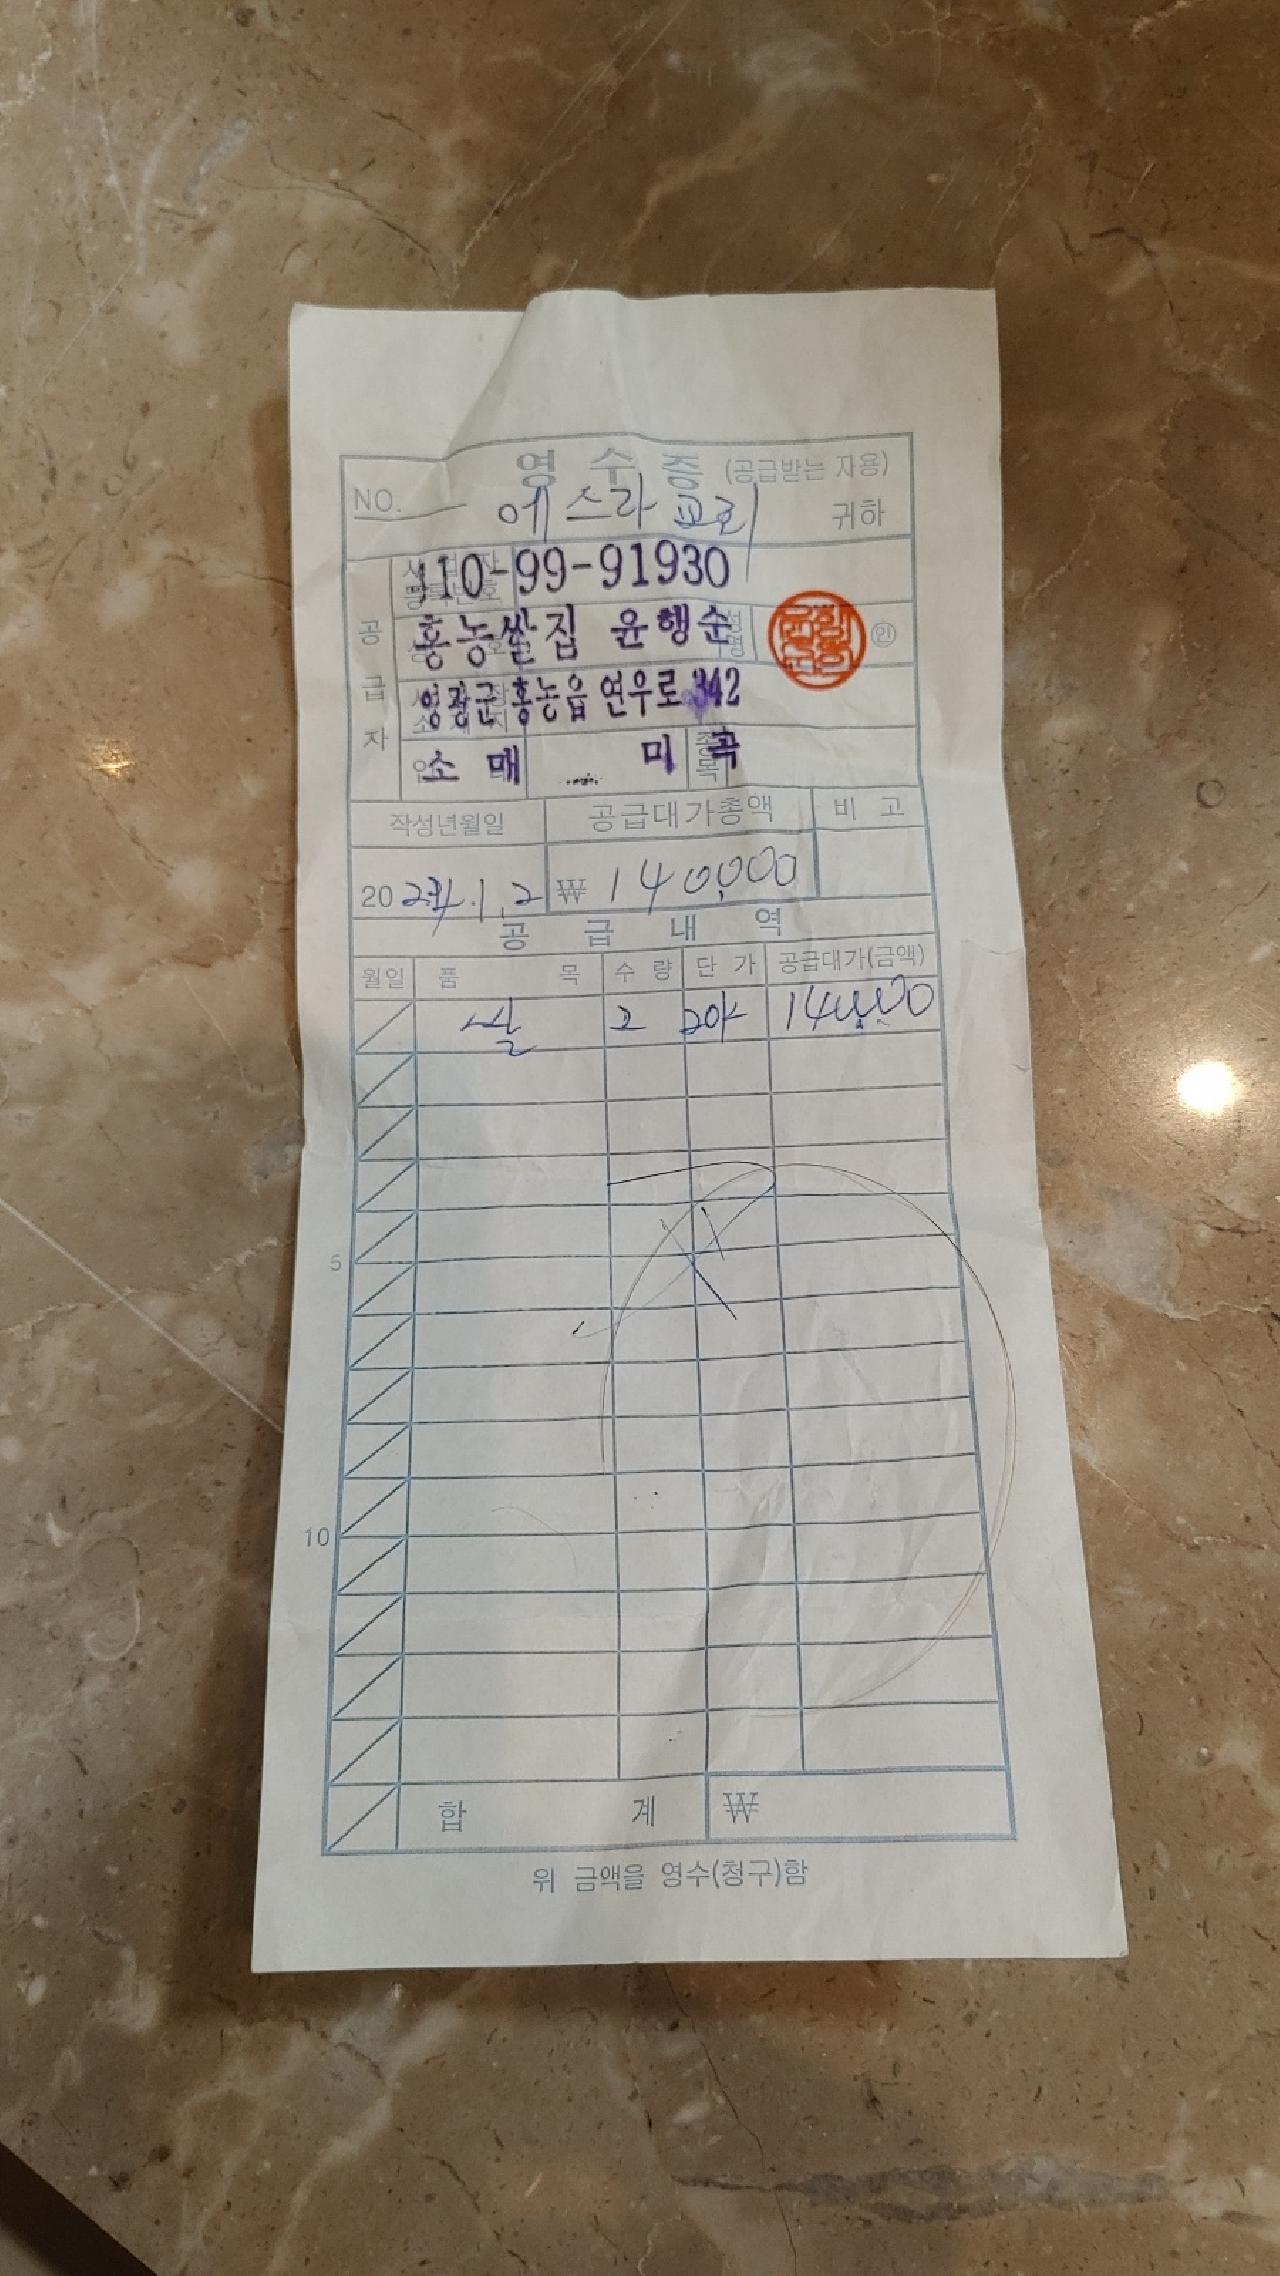 영 수 증 (공급받는 자용)
NO. 에스라 교회 귀하
110-99-91930
공 급 자
홍농쌀집 윤행순 ㊞
영광군 홍농읍 연우로 342
소 매 미 곡
작성년월일 공급대가총액 비 고
20 24.1.2 ₩ 140,000
공 급 내 역
월일 품 목 수 량 단 가 공급대가(금액)
쌀 2 140,000
5
10
합 계 ₩
위 금액을 영수(청구)함